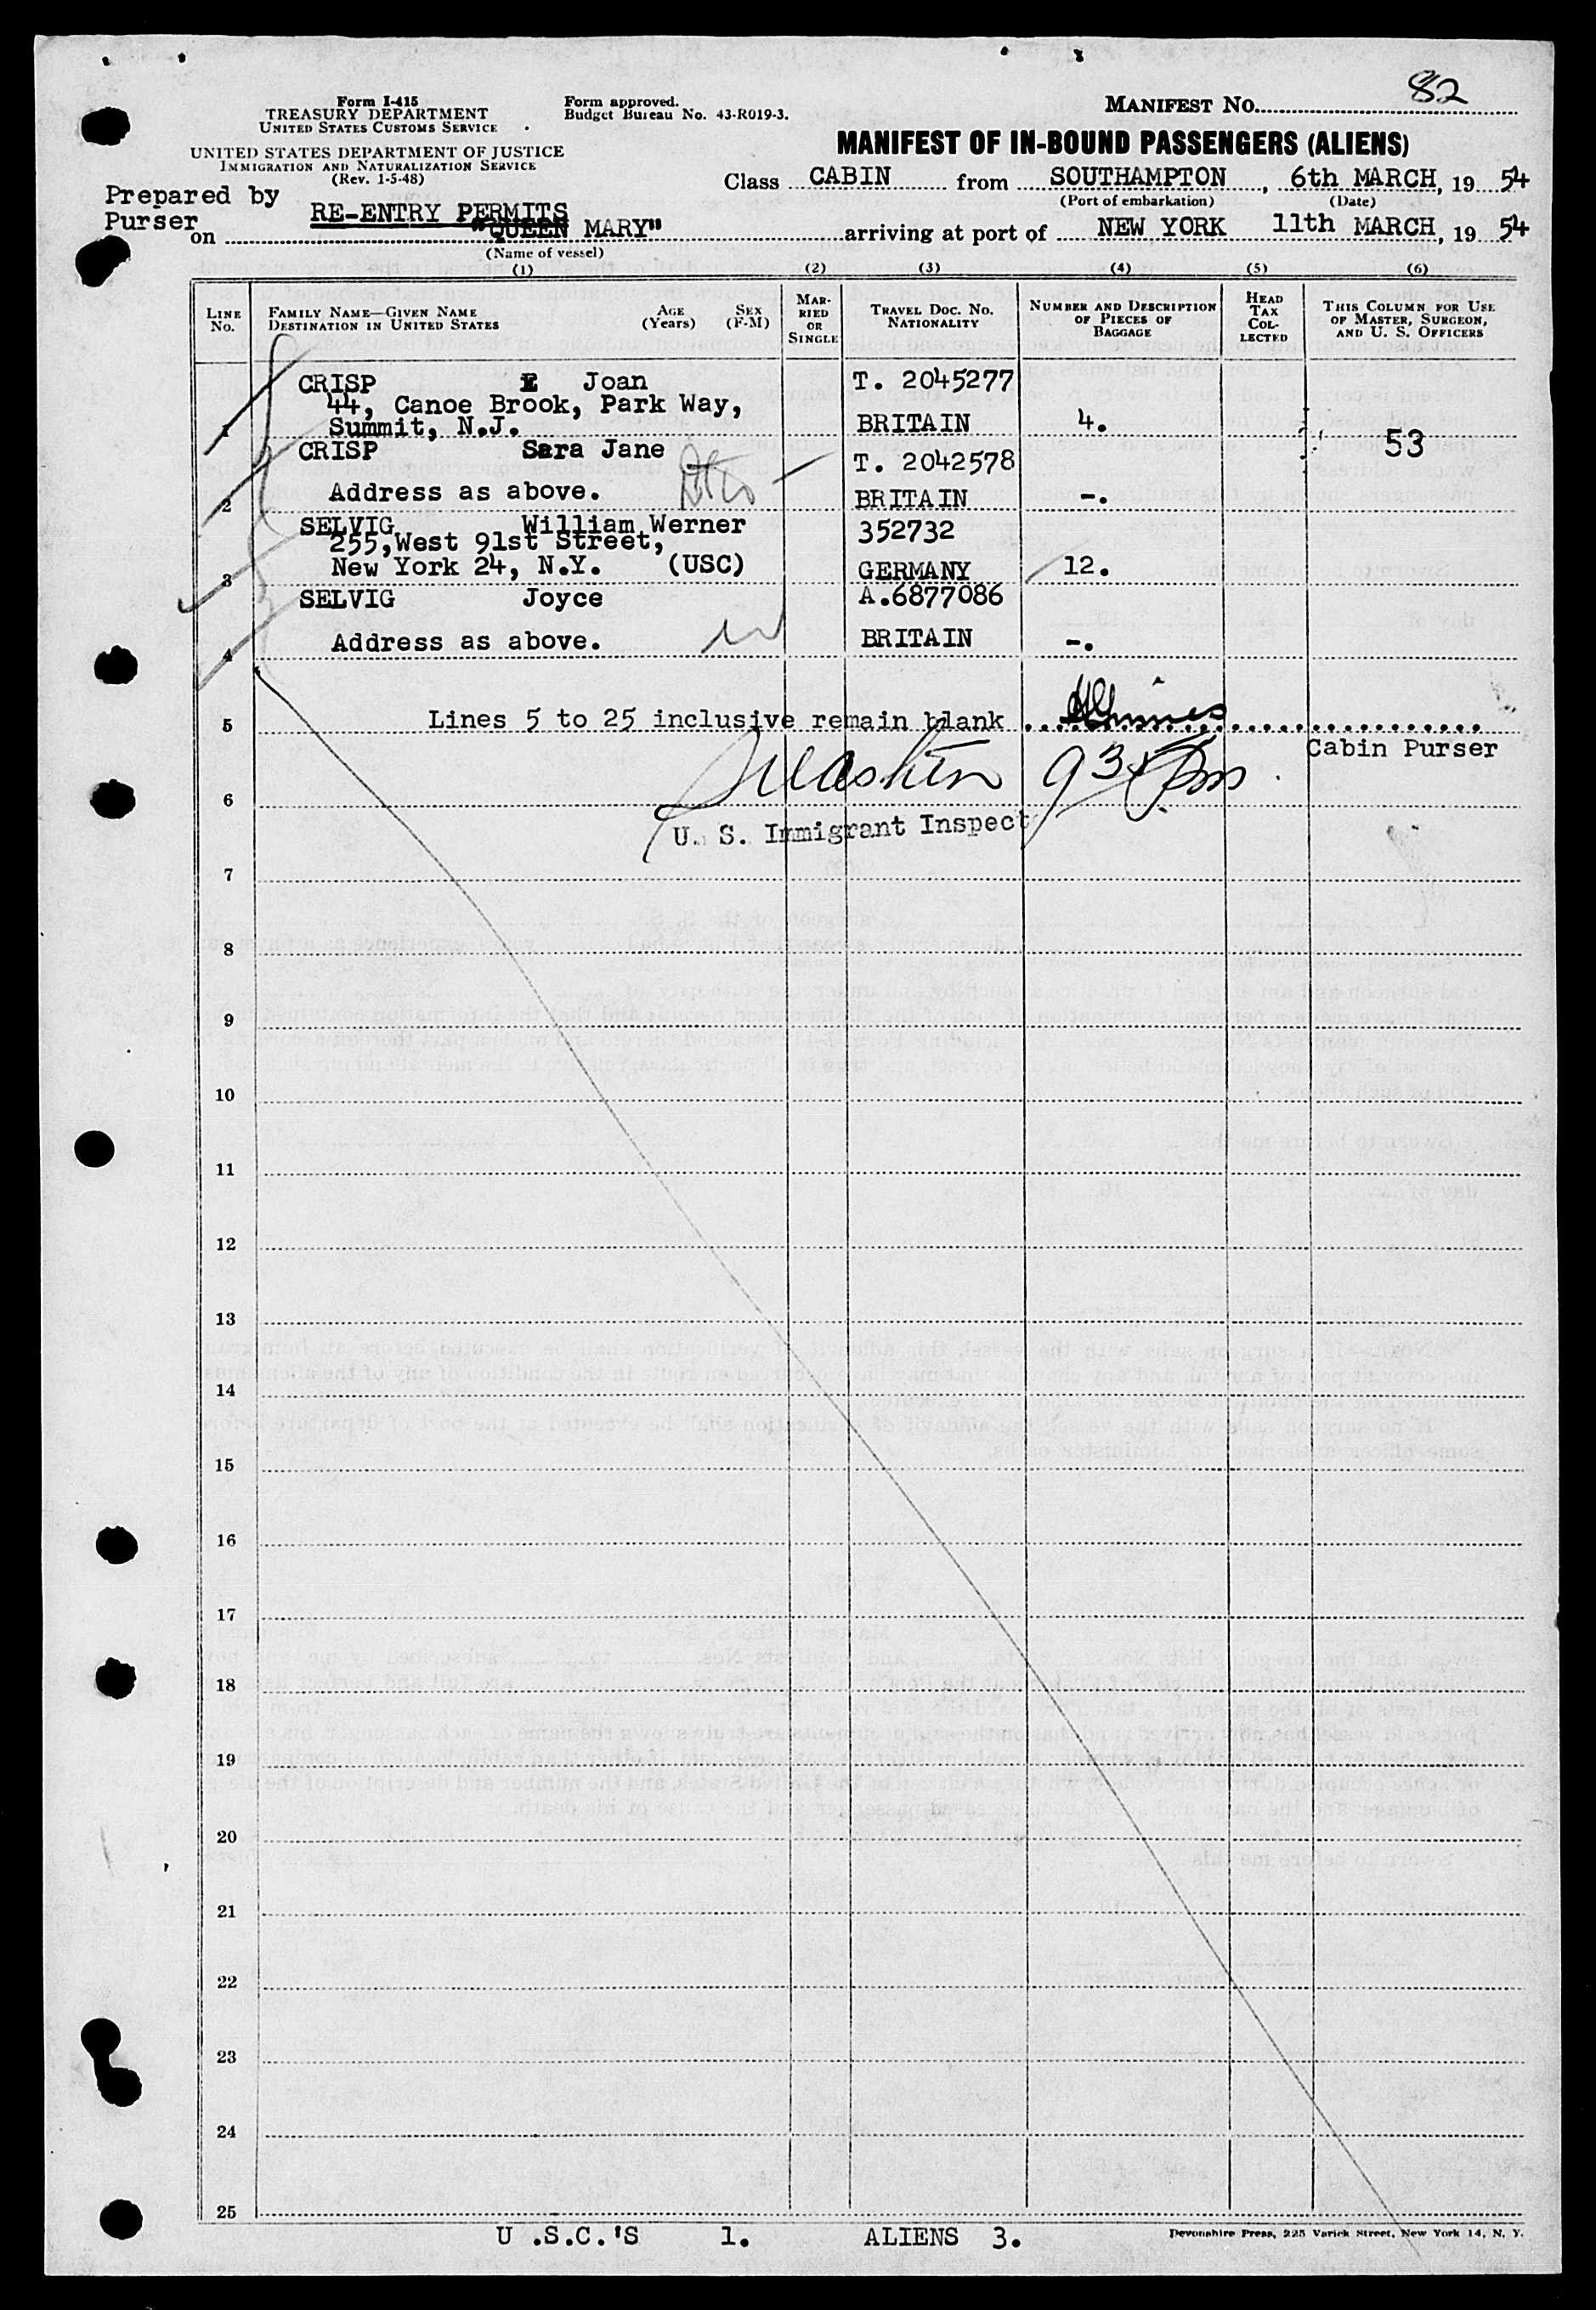 82
Form I-415
TREASURY DEPARTMENT
UNITED STATES CUSTOMS SERVICE
Form approved.
Budget Bureau No. 43-R019-3.
MANIFEST NO.
UNITED STATES DEPARTMENT OF JUSTICE
IMMIGRATION AND NATURALIZATION SERVICE
(Rev. 1-5-48)
MANIFEST OF IN-BOUND PASSENGERS (ALIENS)
Class CABIN from SOUTHAMPTON, 6th MARCH, 19 54
(Port of embarkation) (Date)
Prepared by
Purser
RE-ENTRY PERMITS
on "QUEEN MARY" arriving at port of NEW YORK 11th MARCH, 19 54
(Name of vessel)
(1) (2) (3) (4) (5) (6)
LINE No.
FAMILY NAME—GIVEN NAME
DESTINATION IN UNITED STATES
AGE (Years)
SEX (F-M)
MARRIED OR SINGLE
TRAVEL DOC. NO.
NATIONALITY
NUMBER AND DESCRIPTION OF PIECES OF BAGGAGE
HEAD TAX COLLECTED
THIS COLUMN FOR USE OF MASTER, SURGEON, AND U. S. OFFICERS
CRISP Joan T. 2045277
44, Canoe Brook, Park Way,
1 Summit, N.J. BRITAIN 4.
53
CRISP Sara Jane T. 2042578
2 Address as above. BRITAIN -.
SELVIG William Werner 352732
255,West 91st Street,
3 New York 24, N.Y. (USC) GERMANY 12.
SELVIG Joyce A.6877086
4 Address as above. BRITAIN -.
5 Lines 5 to 25 inclusive remain blank
Cabin Purser
6
U. S. Immigrant Inspect
7
8
9
10
11
12
13
14
15
16
17
18
19
20
21
22
23
24
25
U .S.C.'S 1. ALIENS 3.
Devonshire Press, 225 Varick Street, New York 14, N. Y.